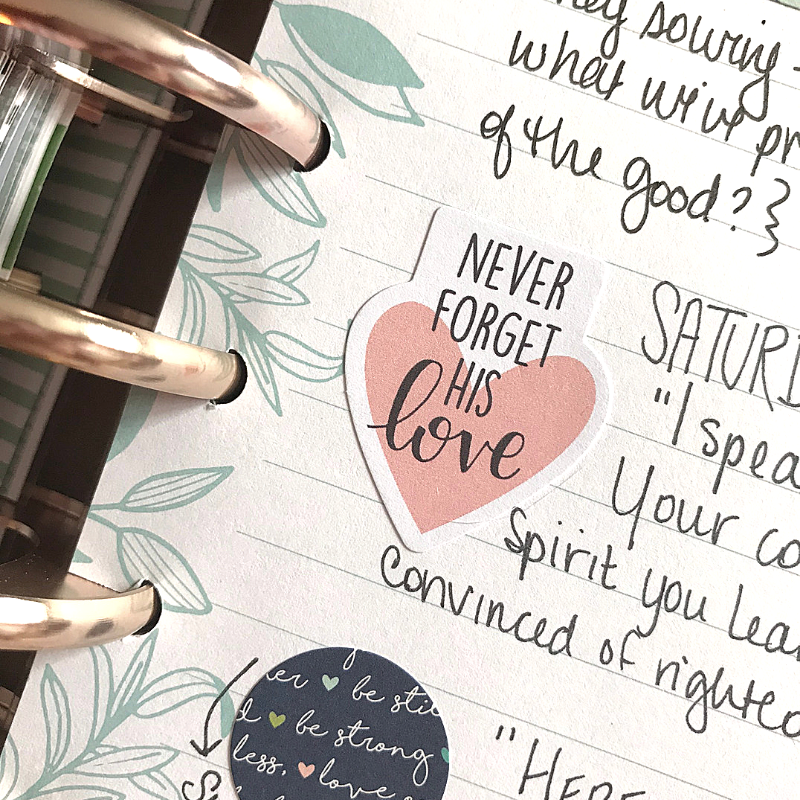 hey souring -
what we've pr
of the good?}
NEVER
FORGET
HIS
love
SATURD
"I spea
Your co
Spirit you lear
convinced of righteo
er ♥ be stil
d ♥ be strong ♥
less. ♥ love
"HERE